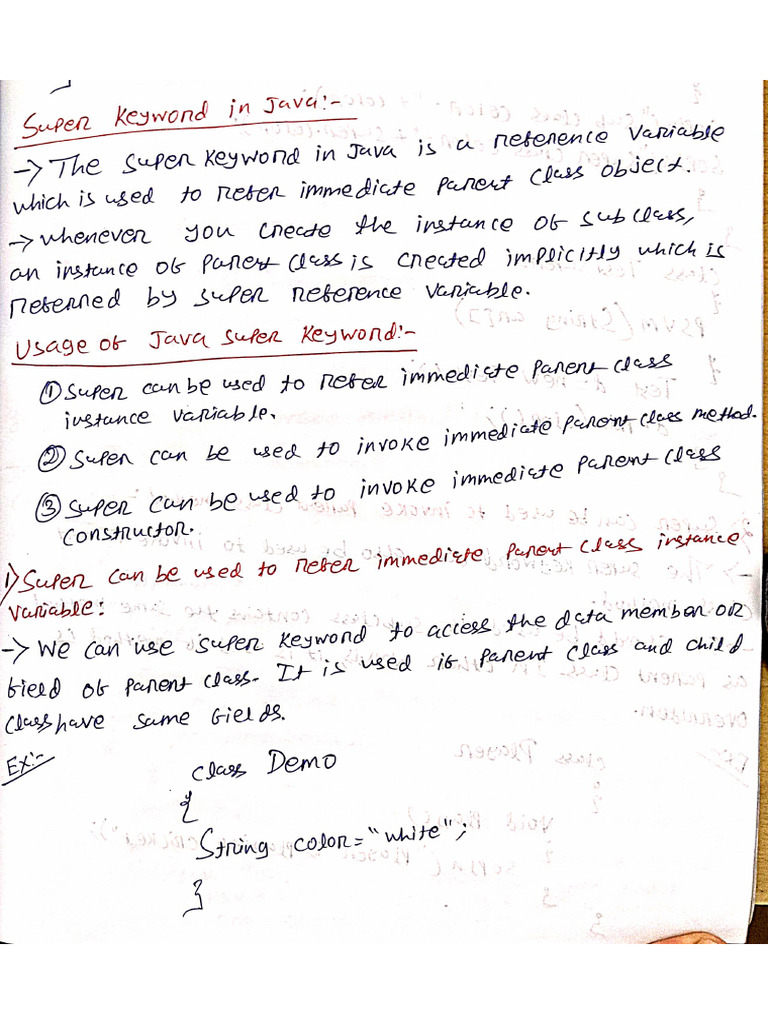 Super Keyword in Java:-
→ The super keyword in Java is a reference variable
which is used to refer immediate parent class object.
→ whenever you create the instance of subclass,
an instance of parent class is created implicitly which is
referred by super reference variable.
Usage of Java super Keyword:-
① super can be used to refer immediate parent class
instance variable.
② super can be used to invoke immediate parent class method.
③ super can be used to invoke immediate parent class
constructor.
1) Super can be used to refer immediate parent class instance
variable:
→ We can use super keyword to access the data member or
field of parent class. It is used if parent class and child
class have same fields.
Ex:-
class Demo
{
String color="white";
}